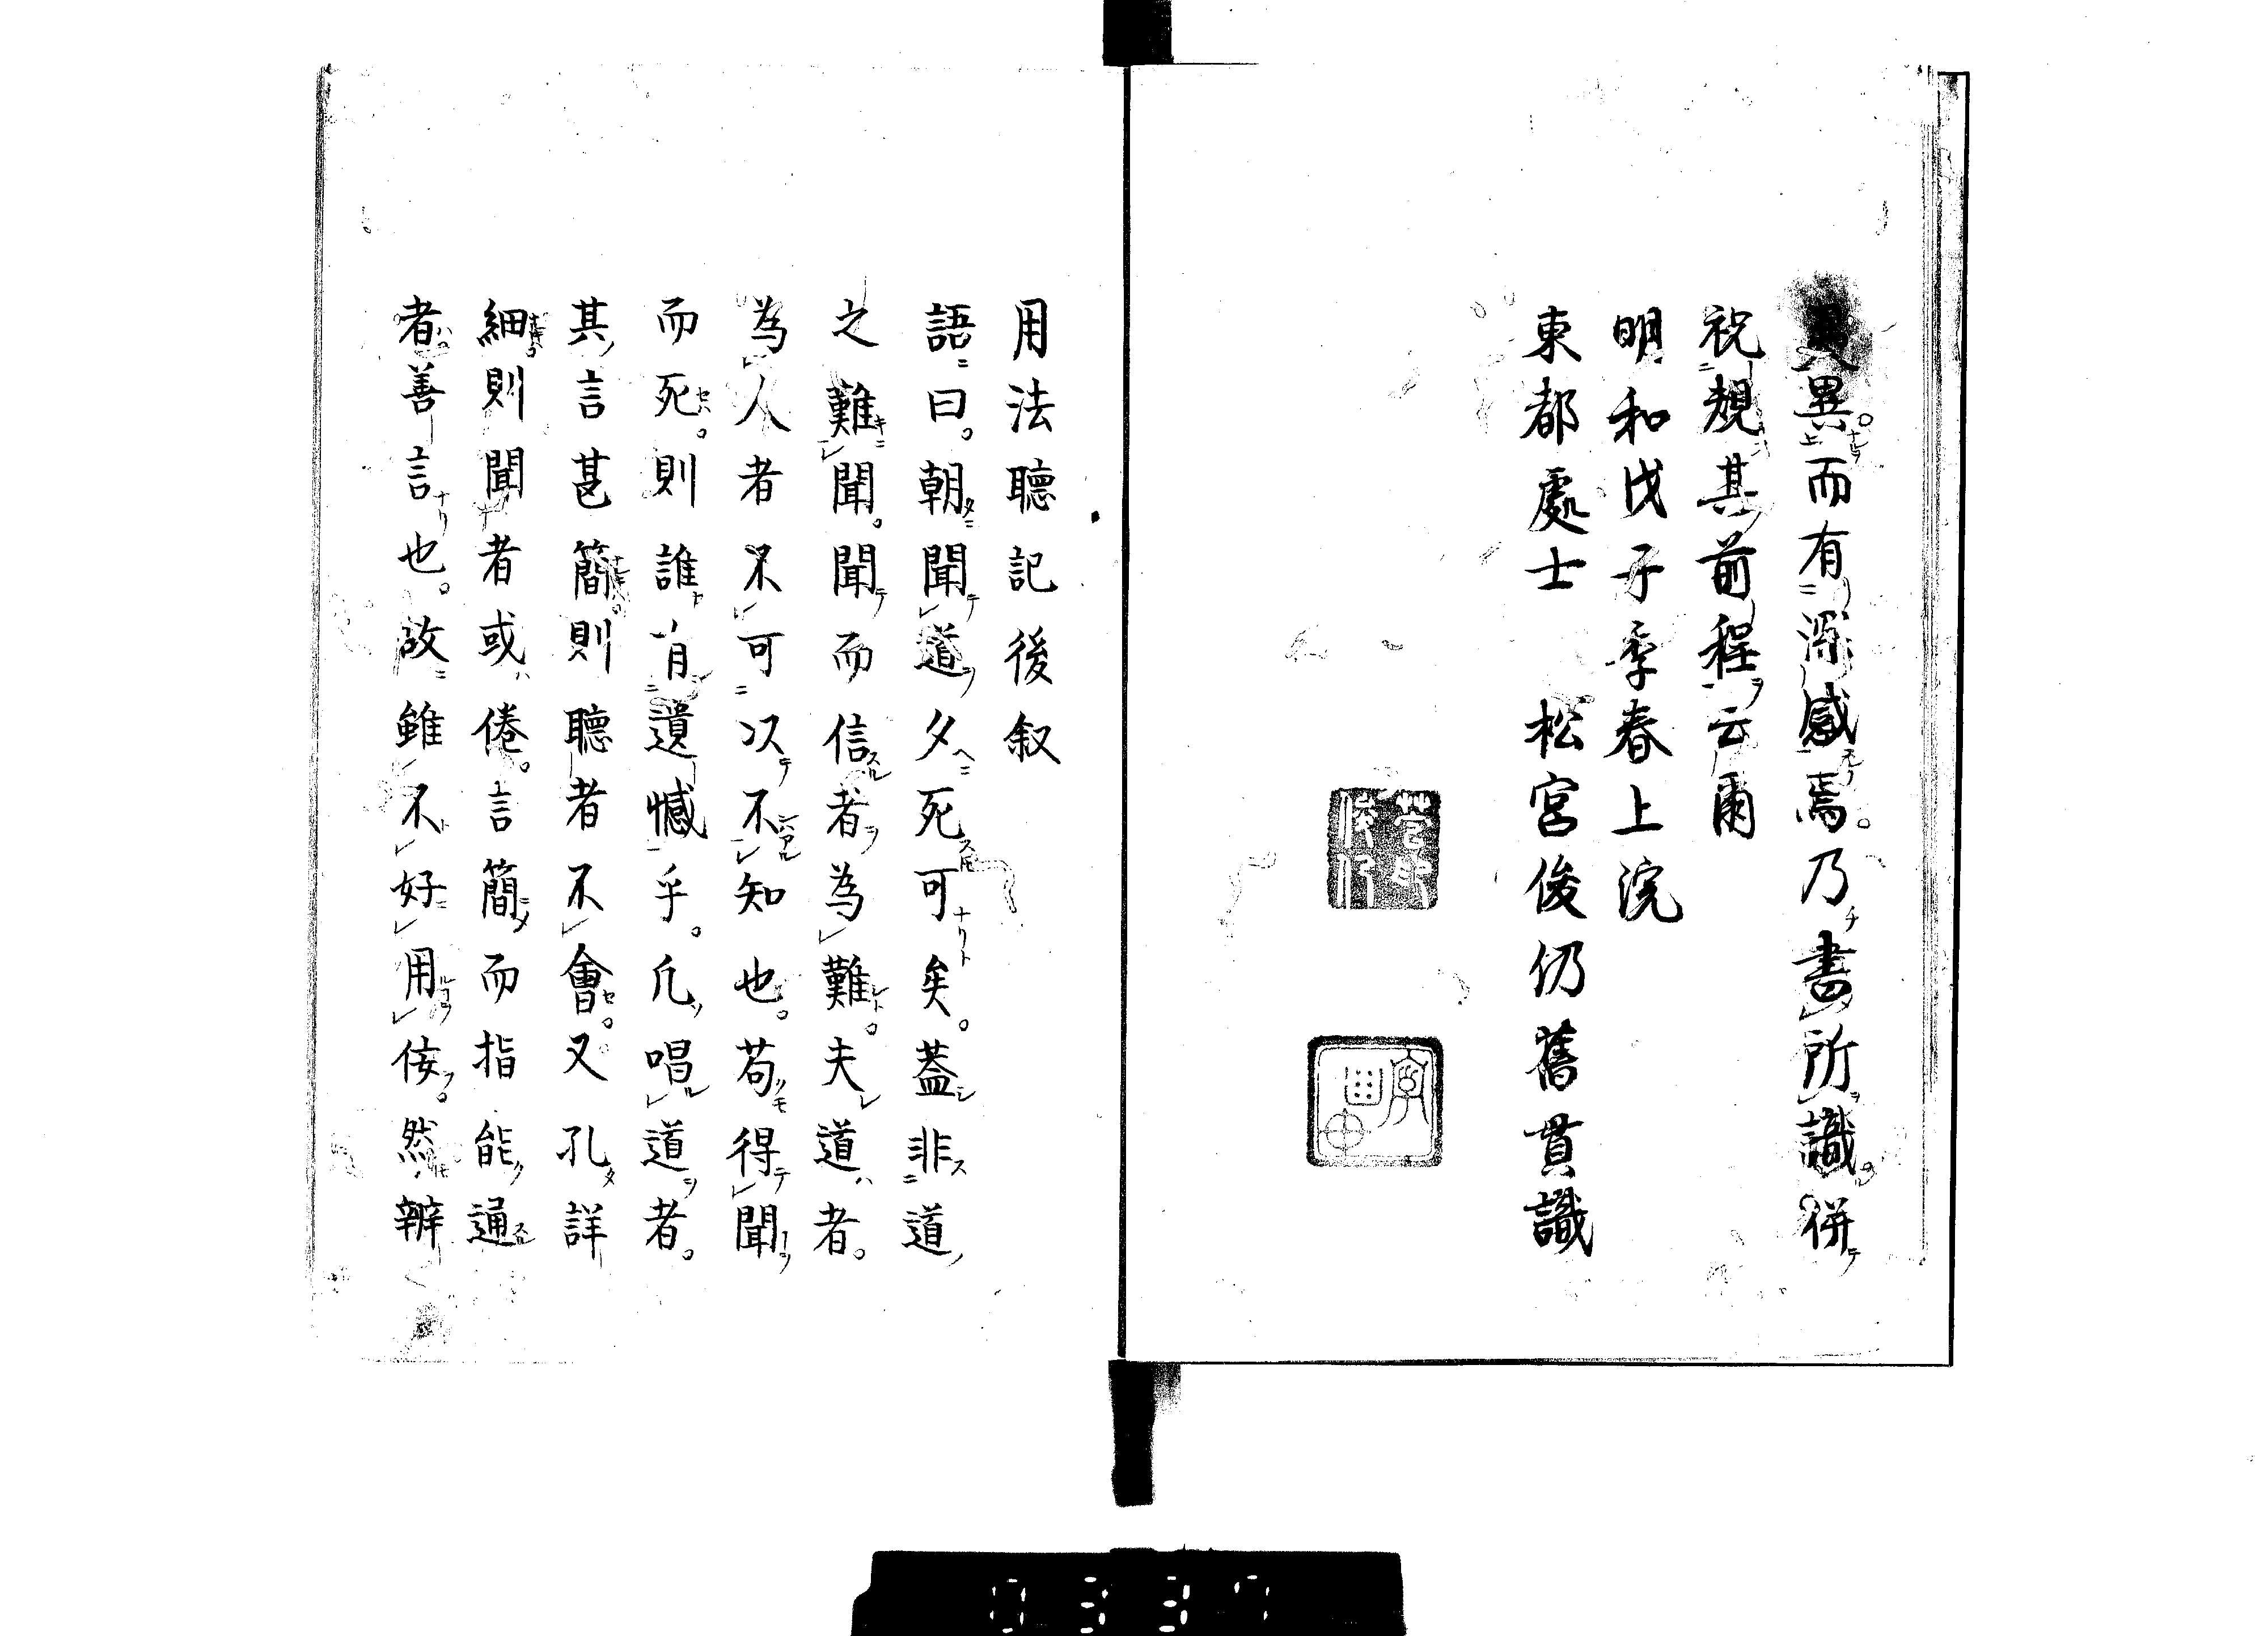 異而有深感焉。乃書所識併
祝規其前程云爾
明和戊子季春上浣
東都處士 松宮俊仍舊貫識
用法聽記後叙
語曰。朝聞道夕死可矣。蓋非道
之難聞。聞而信者為難。夫道者。
為人者不可以不知也。苟得聞
而死。則誰有遺憾乎。凡唱道者。
其言甚簡。則聽者不會。又孔詳
細。則聞者或倦。言簡而指能通
者。善言也。故雖不好用侫。然辨
0337